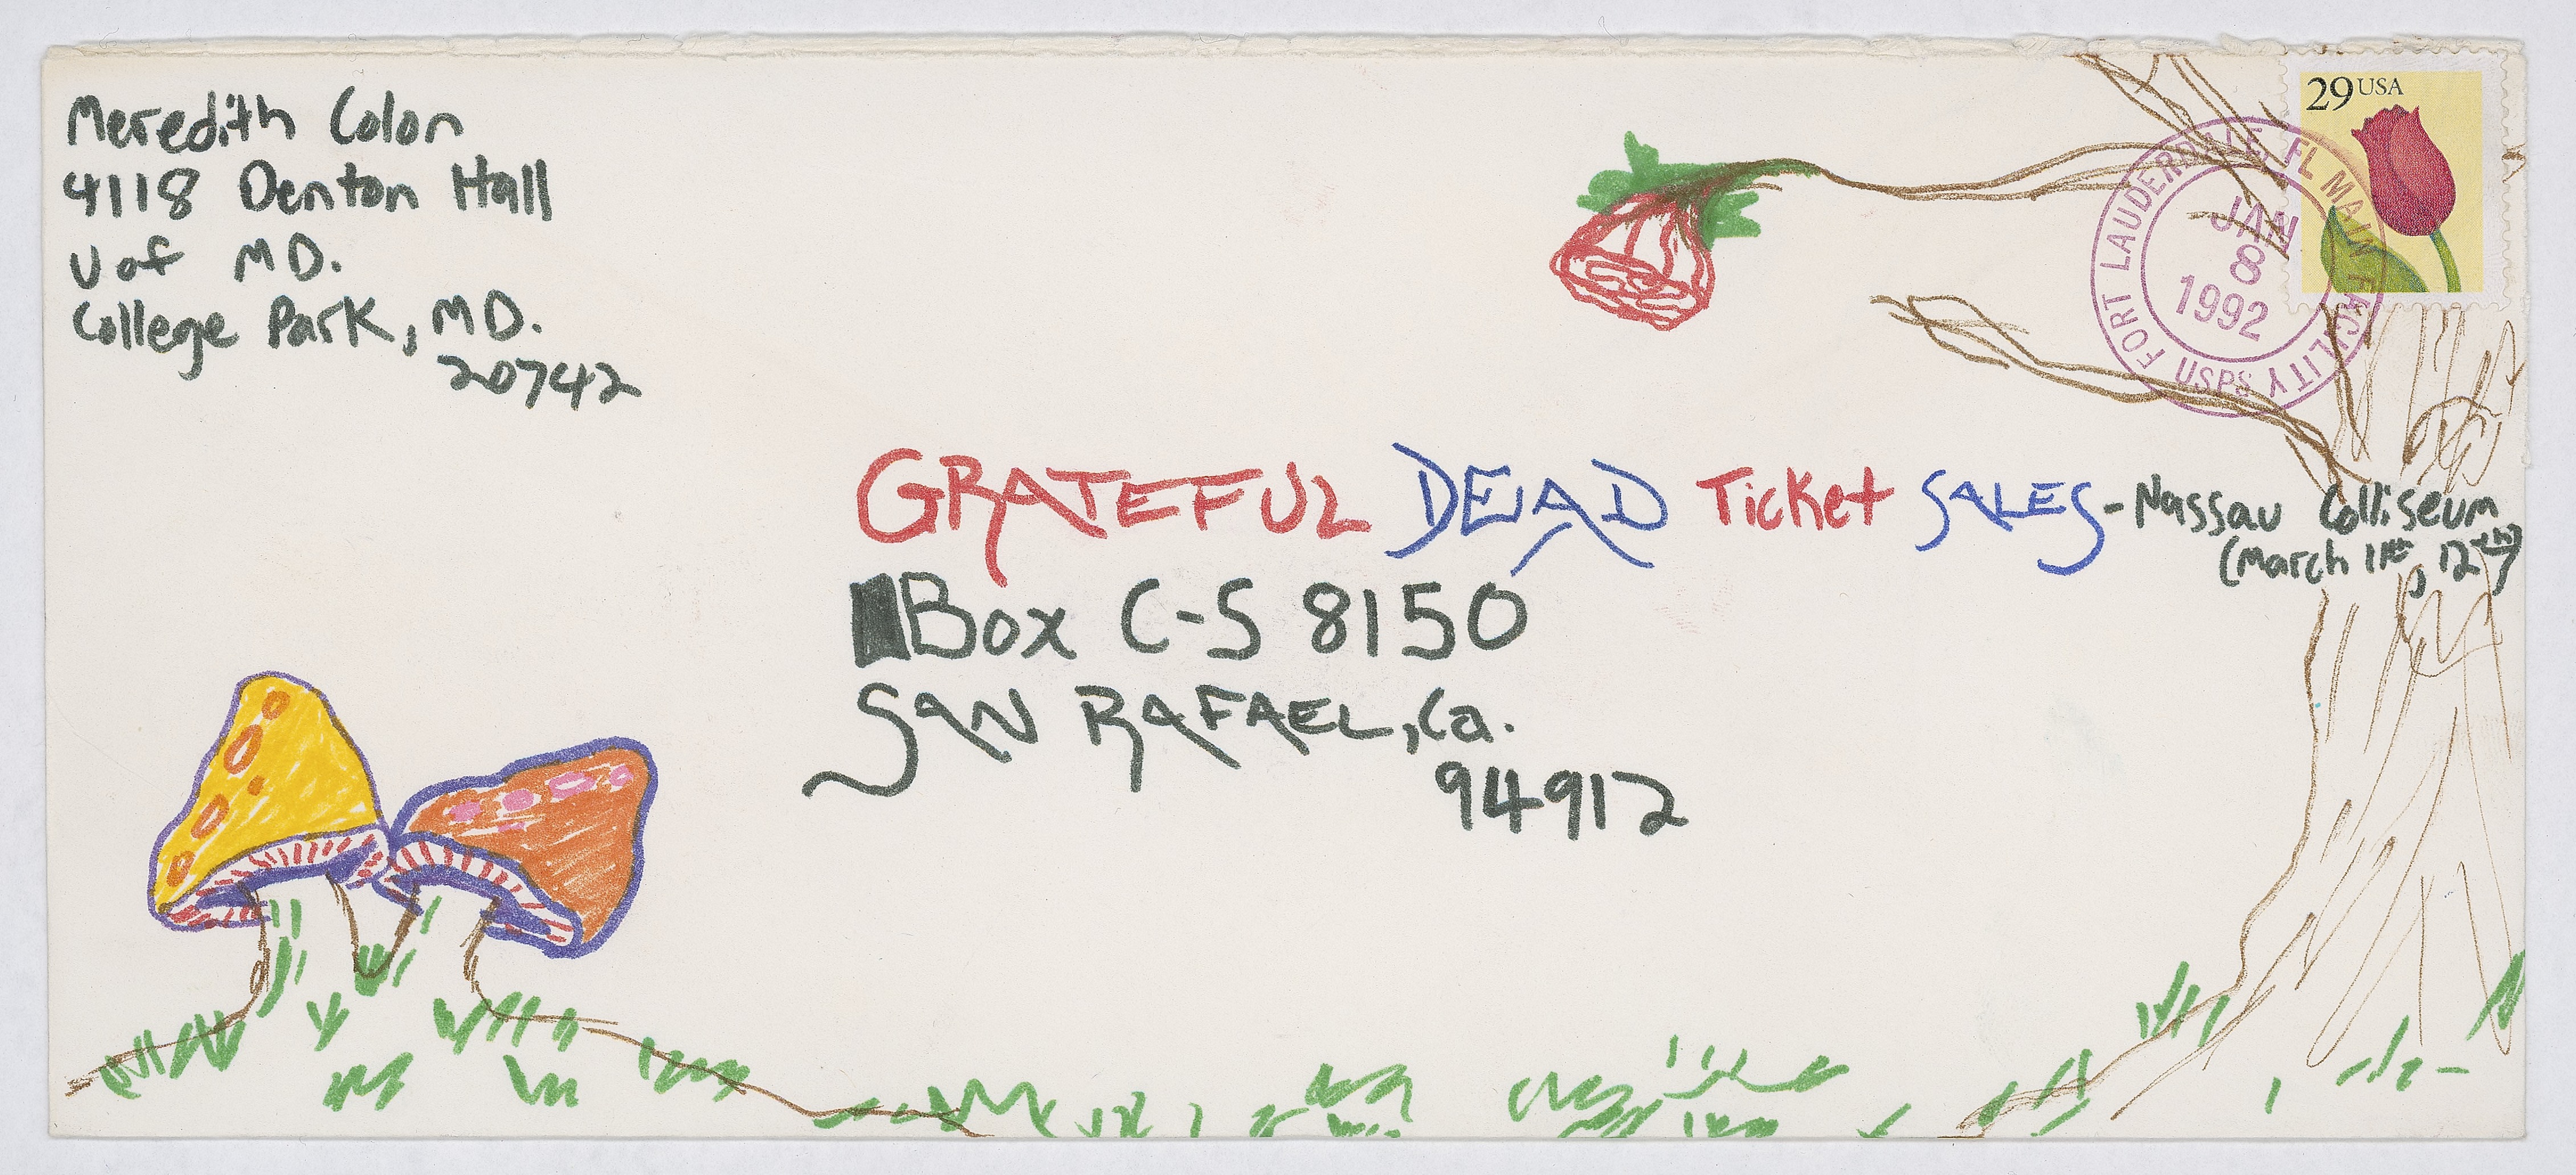 Meredith Colon
4118 Denton Hall
U of MD.
College Park, MD.
20742
29 USA
FORT LAUDERDALE FL MAIN FACILITY
USPS
JAN
8
1992
GRATEFUL DEAD Ticket SALES - Nassau Colliseum
(March 11th, 12th)
Box C-S 8150
SAN RAFAEL, Ca.
94912